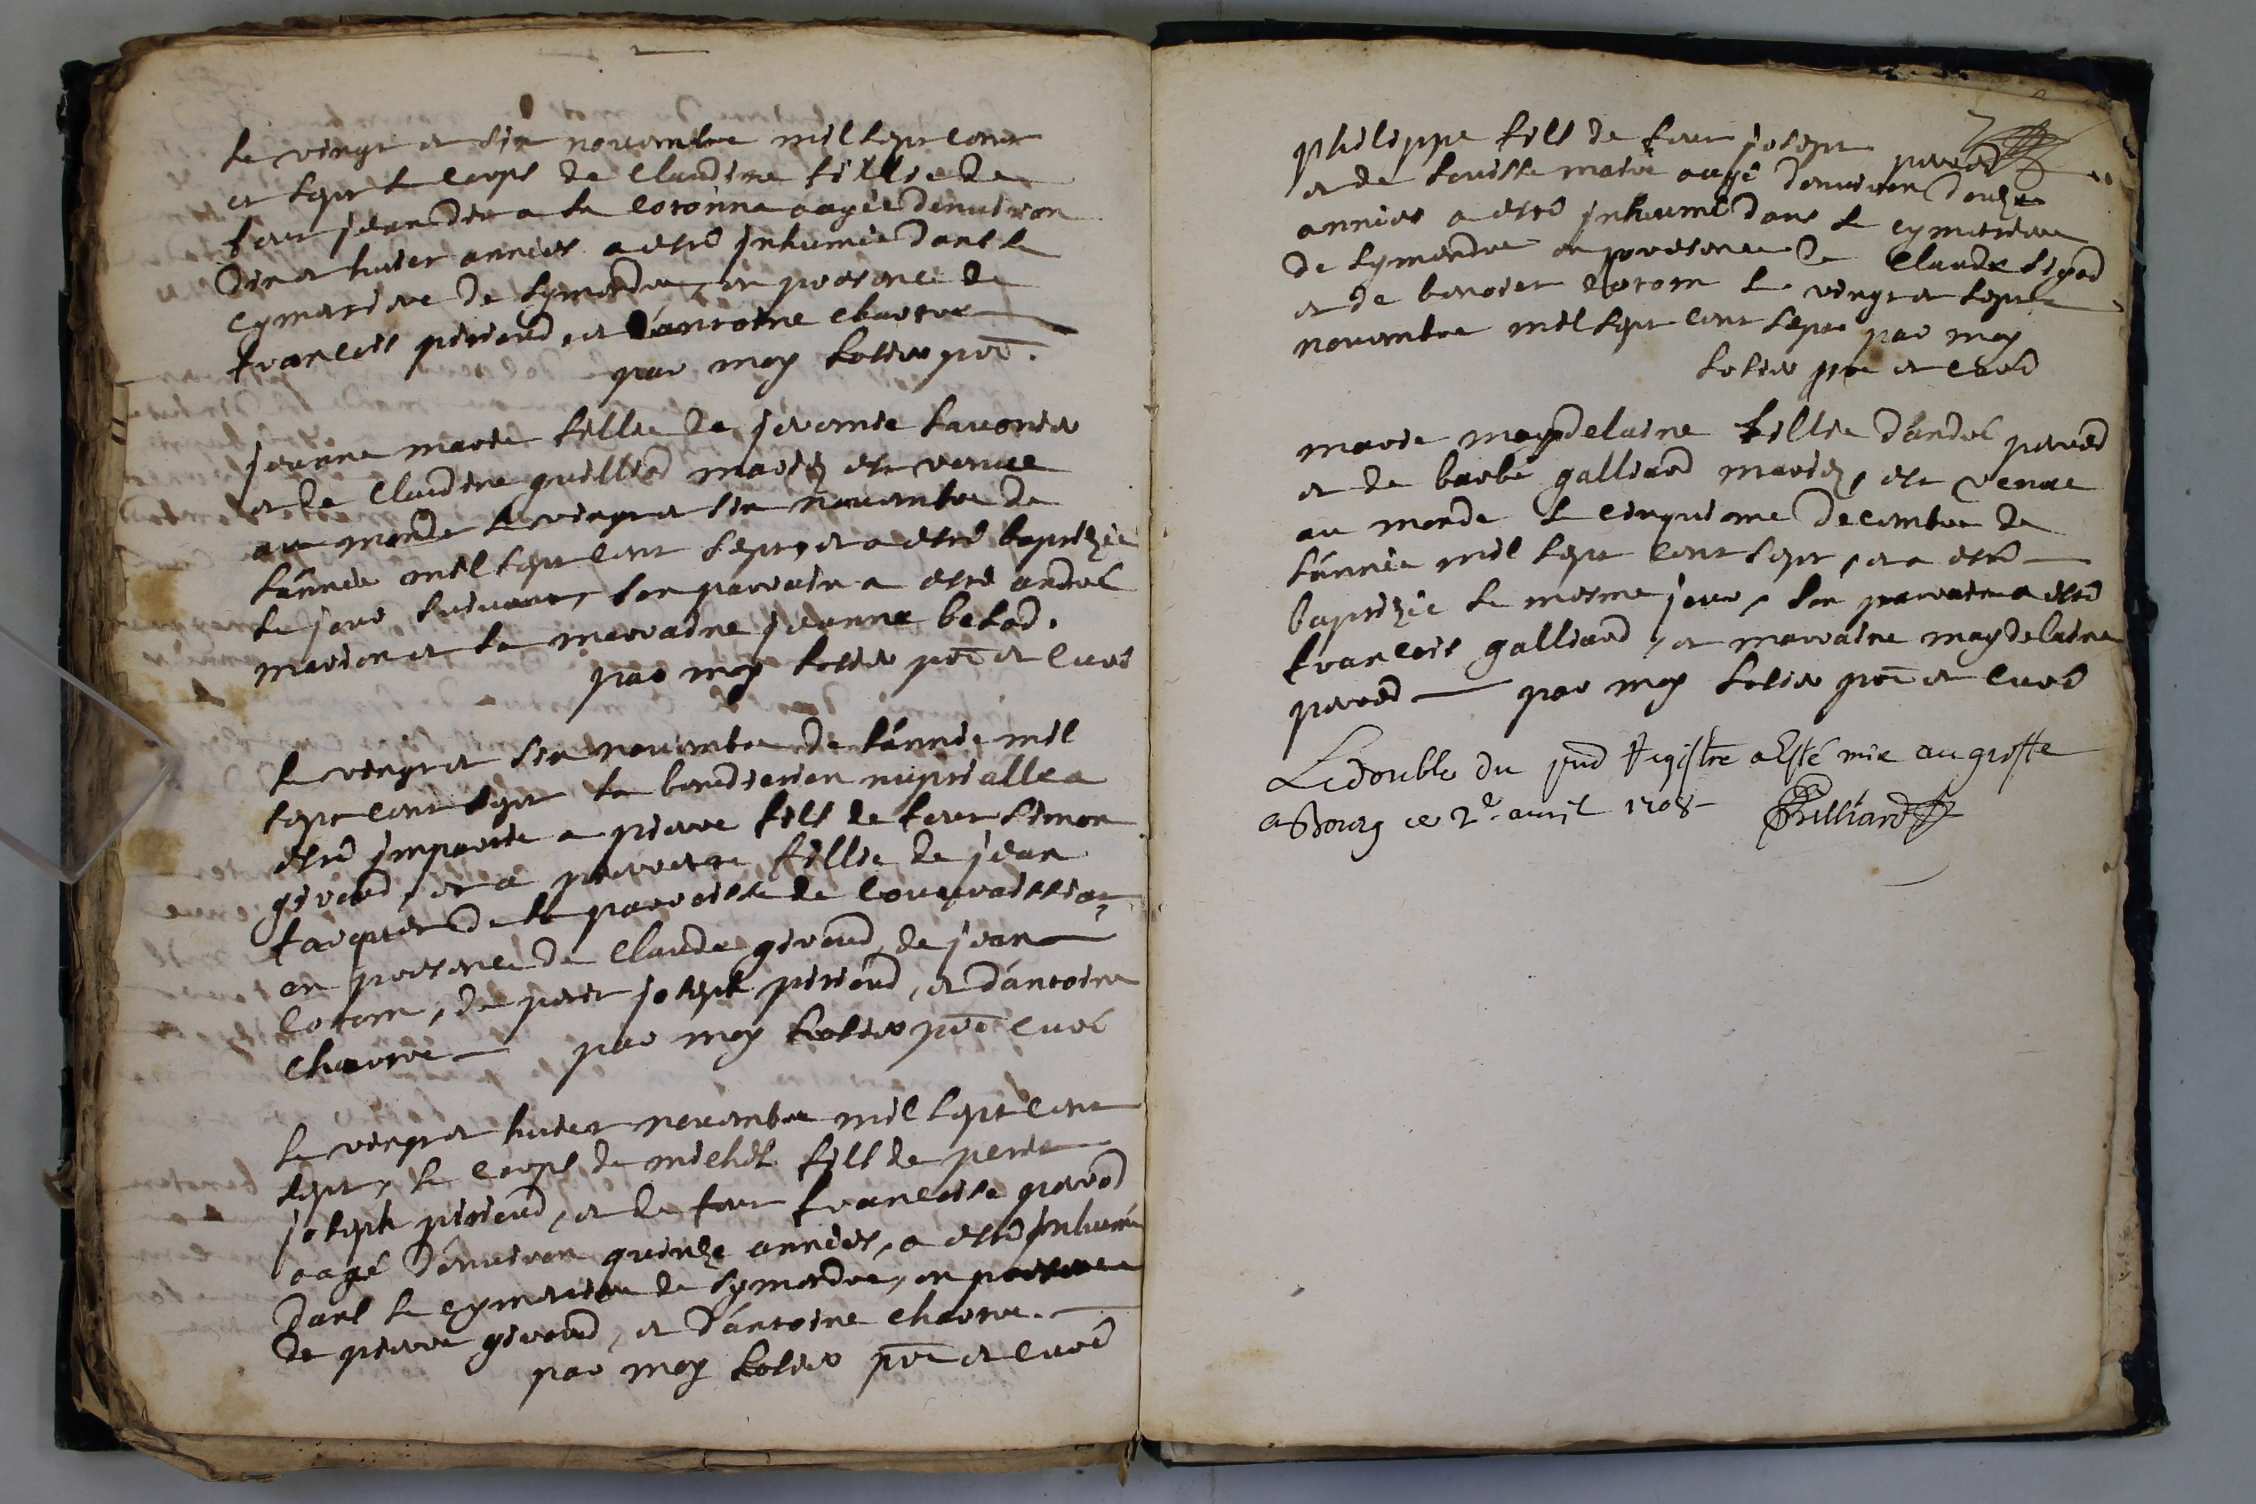 le vingt et six novembre mil sept cent
et sept le corps de claudine fillie de
feu jean de la coronne aagée denviron
dix et huict années a esté jnhumée dans le
cymetiere de symandre en presence de
francois pirioud, et d'antoine chartre
par moy solier pre.
jeanne marie fillie de jeromie savorier
et de claudine guilliod mariez est venue
au monde le vingt et six novembre de
l'année mil sept cent sept, et a esté baptizée
le jour suivant, son parrain a esté andré
marion et la marraine jeanne besod.
par moy solier pre et curé
le vingt et six novembre de l'année mil
sept cent sept la benediction nuptialle a
esté jmpartie a pierre fils de feu simon
giroud, et a pierrette fillie de jean
jacquier de la parroisse de courvaissiat,
en presence de claude giroud, de jean
cotton, de petit joseph pirioud, et d'antoine
chartre par moy solier pre curé
le vingt et huict novembre mil sept cent
sept, le corps de michel fils de petit
joseph pirioud, et de feu francoise pered
aagé d'environ quinze années, a esté jnhumé
dans le cymetiere de symandre, en presence
de pierre giroud, et d'antoine chartre.
par moy solier pre et curé
philippe fils de feu joseph pered
et de louisse maire aagé d'environ douze
années a esté jnhumé dans le cymetiere
de symandre en presence de claude
et de benoict cotton le vingt et sept
novembre mil sept cent sept par moy
solier pre et curé
marie magdelaine fillie d'andré pered
et de barbe galliard mariez, est venue
au monde le cinquiome decembre de
l'année mil sept cent sept, et a esté
baptizée le mesme jour, son parrain a esté
francois galliard, et marraine magdelaine
pered par moy solier pre et curé
Le double du pnd Registre a Esté mis au greffe
a Bourg ce 2e. avril 1708 Brilliard